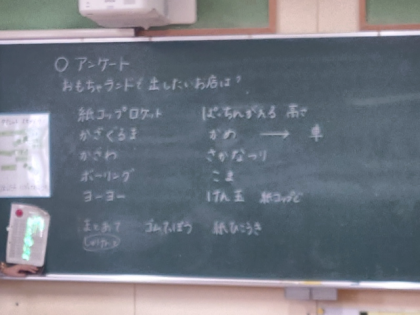 ○ アンケート
おもちゃランドで 出したいお店は?
紙コップロケット ぱっちんがえる 高さ
かざぐるま かめ → 車
かざわ さかなつり
ボーリング こま
ヨーヨー けん玉 紙コップで
まとあて ゴムでっぽう 紙ひこうき